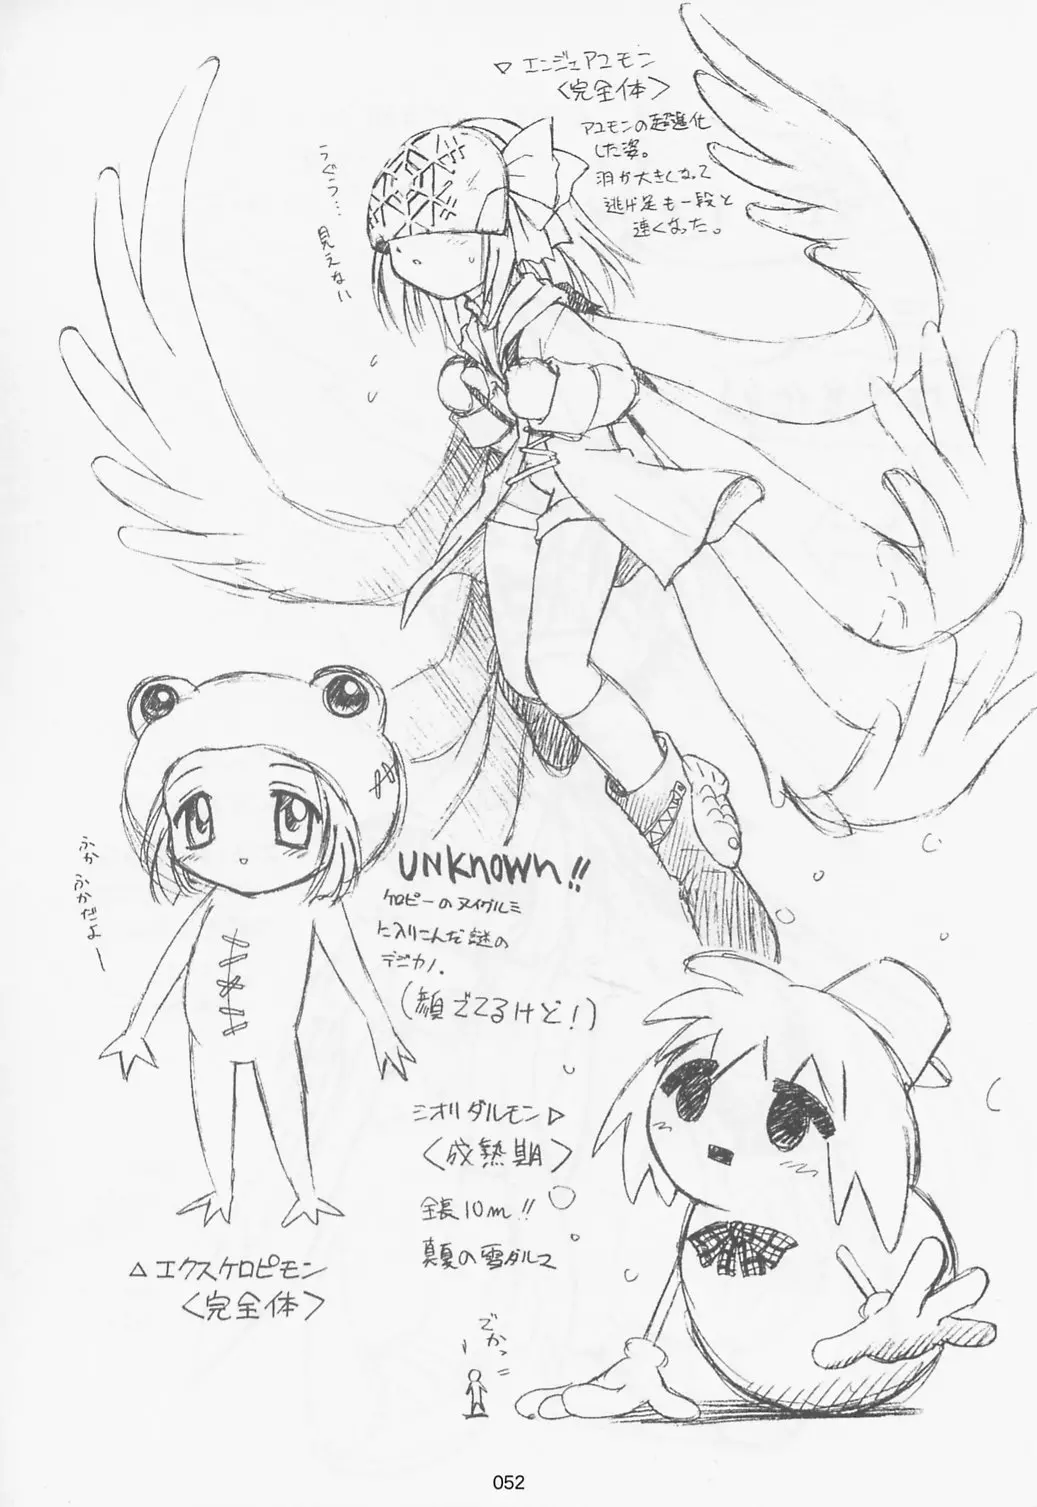 ▽ エンジェアユモン
<完全体>
アユモンの超進化
した姿。
羽が大きくなって
逃げ足も一段と
速くなった。
うぐぅ…
見えない
UNKNOWN!!
ケロピーのヌイグルミ
に入りこんだ謎の
デジカノ.
(顔でてるけど!)
ふか ふかだよー
△エクスケロピモン
<完全体>
シオリダルモン▷
<成熟期>
全長10m!!
真夏の雪ダルマ
でかっ
052